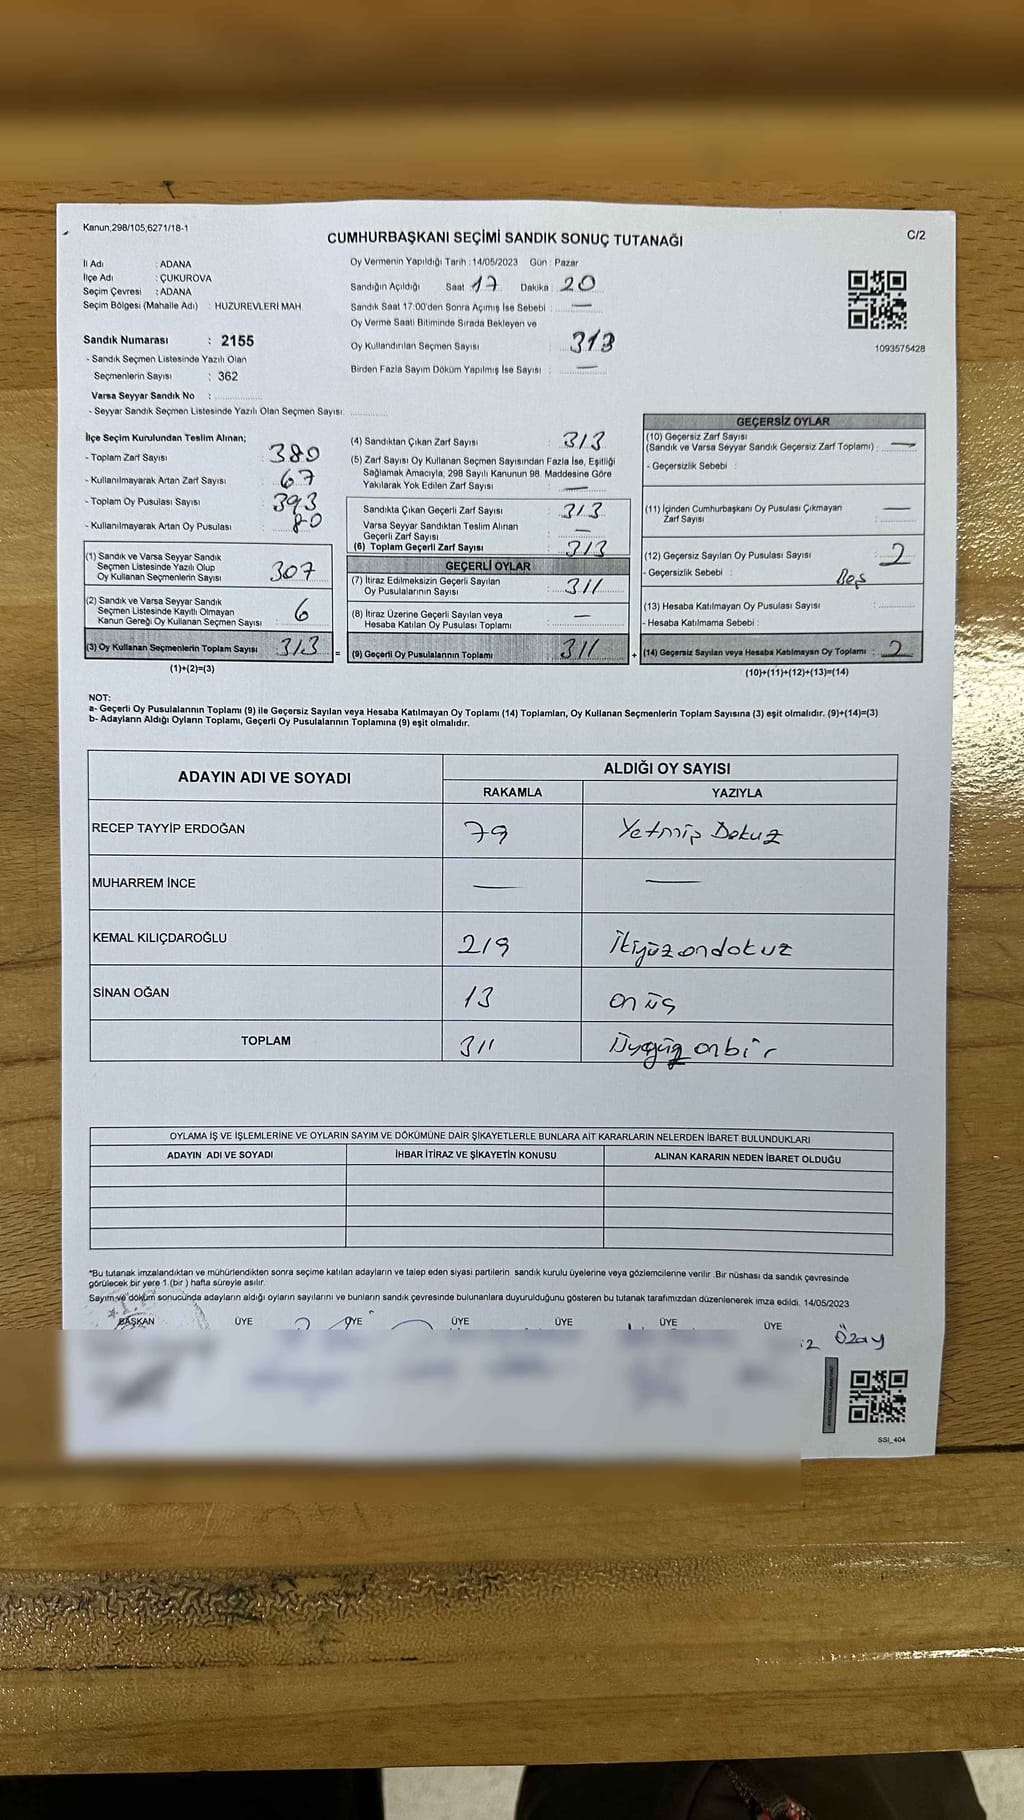 Kanun,298/105,6271/18-1
CUMHURBAŞKANI SEÇİMİ SANDIK SONUÇ TUTANAĞI
C/2
İl Adı : ADANA
İlçe Adı : ÇUKUROVA
Seçim Çevresi : ADANA
Seçim Bölgesi (Mahalle Adı) : HUZUREVLERİ MAH.
Oy Vermenin Yapıldığı Tarih : 14/05/2023 Gün : Pazar
Sandığın Açıldığı Saat : 17 Dakika : 20
Sandık Saat 17:00'den Sonra Açımış İse Sebebi : —
Oy Verme Saati Bitiminde Sırada Bekleyen ve
Oy Kullandırılan Seçmen Sayısı : 313
Birden Fazla Sayım Döküm Yapılmış İse Sayısı : —
1093575428
Sandık Numarası : 2155
- Sandık Seçmen Listesinde Yazılı Olan
Seçmenlerin Sayısı : 362
Varsa Seyyar Sandık No :
- Seyyar Sandık Seçmen Listesinde Yazılı Olan Seçmen Sayısı:
İlçe Seçim Kurulundan Teslim Alınan;
- Toplam Zarf Sayısı : 380
- Kullanılmayarak Artan Zarf Sayısı : 67
- Toplam Oy Pusulası Sayısı : 393
- Kullanılmayarak Artan Oy Pusulası : 80
(1) Sandık ve Varsa Seyyar Sandık
Seçmen Listesinde Yazılı Olup
Oy Kullanan Seçmenlerin Sayısı : 307
(2) Sandık ve Varsa Seyyar Sandık
Seçmen Listesinde Kayıtlı Olmayan
Kanun Gereği Oy Kullanan Seçmen Sayısı : 6
(3) Oy Kullanan Seçmenlerin Toplam Sayısı : 313 =
(1)+(2)=(3)
(4) Sandıktan Çıkan Zarf Sayısı : 313
(5) Zarf Sayısı Oy Kullanan Seçmen Sayısından Fazla İse, Eşitliği
Sağlamak Amacıyla, 298 Sayılı Kanunun 98. Maddesine Göre
Yakılarak Yok Edilen Zarf Sayısı : —
Sandıkta Çıkan Geçerli Zarf Sayısı : 313
Varsa Seyyar Sandıktan Teslim Alınan
Geçerli Zarf Sayısı : —
(6) Toplam Geçerli Zarf Sayısı : 313
GEÇERLİ OYLAR
(7) İtiraz Edilmeksizin Geçerli Sayılan
Oy Pusulalarının Sayısı : 311
(8) İtiraz Üzerine Geçerli Sayılan veya
Hesaba Katılan Oy Pusulası Toplamı : —
(9) Geçerli Oy Pusulalarının Toplamı : 311 +
GEÇERSİZ OYLAR
(10) Geçersiz Zarf Sayısı
(Sandık ve Varsa Seyyar Sandık Geçersiz Zarf Toplamı) : —
- Geçersizlik Sebebi :
(11) İçinden Cumhurbaşkanı Oy Pusulası Çıkmayan
Zarf Sayısı : —
(12) Geçersiz Sayılan Oy Pusulası Sayısı : 2
- Geçersizlik Sebebi :
(13) Hesaba Katılmayan Oy Pusulası Sayısı :
- Hesaba Katılmama Sebebi :
(14) Geçersiz Sayılan veya Hesaba Katılmayan Oy Toplamı : 2
(10)+(11)+(12)+(13)=(14)
NOT:
a- Geçerli Oy Pusulalarının Toplamı (9) ile Geçersiz Sayılan veya Hesaba Katılmayan Oy Toplamı (14) Toplamları, Oy Kullanan Seçmenlerin Toplam Sayısına (3) eşit olmalıdır. (9)+(14)=(3)
b- Adayların Aldığı Oyların Toplamı, Geçerli Oy Pusulalarının Toplamına (9) eşit olmalıdır.
ADAYIN ADI VE SOYADI
ALDIĞI OY SAYISI
RAKAMLA YAZIYLA
RECEP TAYYİP ERDOĞAN 79 Yetmiş Dokuz
MUHARREM İNCE — —
KEMAL KILIÇDAROĞLU 219 İkiyüzondokuz
SİNAN OĞAN 13 onüç
TOPLAM 311 Üçyüzonbir
OYLAMA İŞ VE İŞLEMLERİNE VE OYLARIN SAYIM VE DÖKÜMÜNE DAİR ŞİKAYETLERLE BUNLARA AİT KARARLARIN NELERDEN İBARET BULUNDUKLARI
ADAYIN ADI VE SOYADI İHBAR İTİRAZ VE ŞİKAYETİN KONUSU ALINAN KARARIN NEDEN İBARET OLDUĞU
*Bu tutanak imzalandıktan ve mühürlendikten sonra seçime katılan adayların ve talep eden siyasi partilerin sandık kurulu üyelerine veya gözlemcilerine verilir. Bir nüshası da sandık çevresinde
görülecek bir yere 1 (bir) hafta süreyle asılır.
Sayım ve döküm sonucunda adayların aldığı oyların sayılarını ve bunların sandık çevresinde bulunanlara duyurulduğunu gösteren bu tutanak tarafımızdan düzenlenerek imza edildi. 14/05/2023
BAŞKAN ÜYE ÜYE ÜYE ÜYE ÜYE ÜYE
Özay
SSI_404